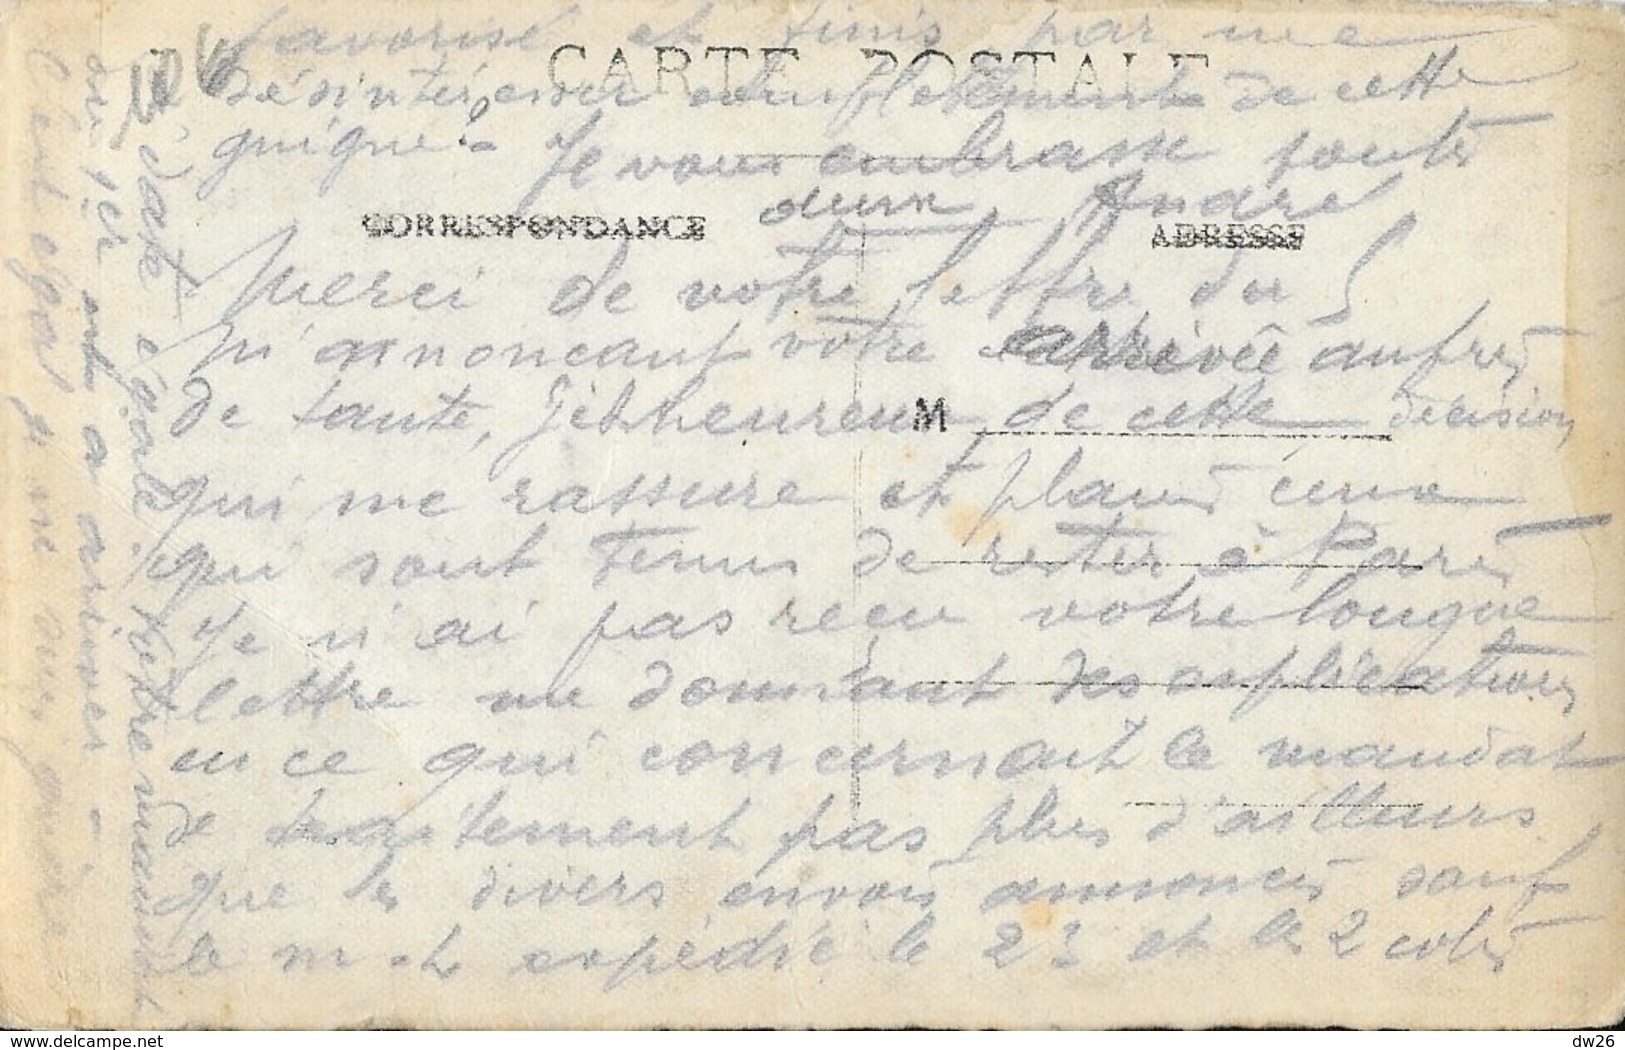 favorisé et finis par me
CARTE POSTALE
désintéresser complètement de cette
guigne. Je vous embrasse toutes
deux André
CORRESPONDANCE
ADRESSE
Merci de votre lettre du 5
m'annonçant votre arrivée
de santé, heureux de cette décision
M
qui me rassure et plains ceux
qui sont tenus de rester à Paris
Je n'ai pas reçu votre longue
lettre me donnant des explications
en ce qui concernait le mandat
de traitement pas plus d'ailleurs
que les divers envois annoncés sauf
le expédié le 22 et les 2 colis
date égaré.
ou 1er a arriver -
C'est égal je ne suis guère
dw26